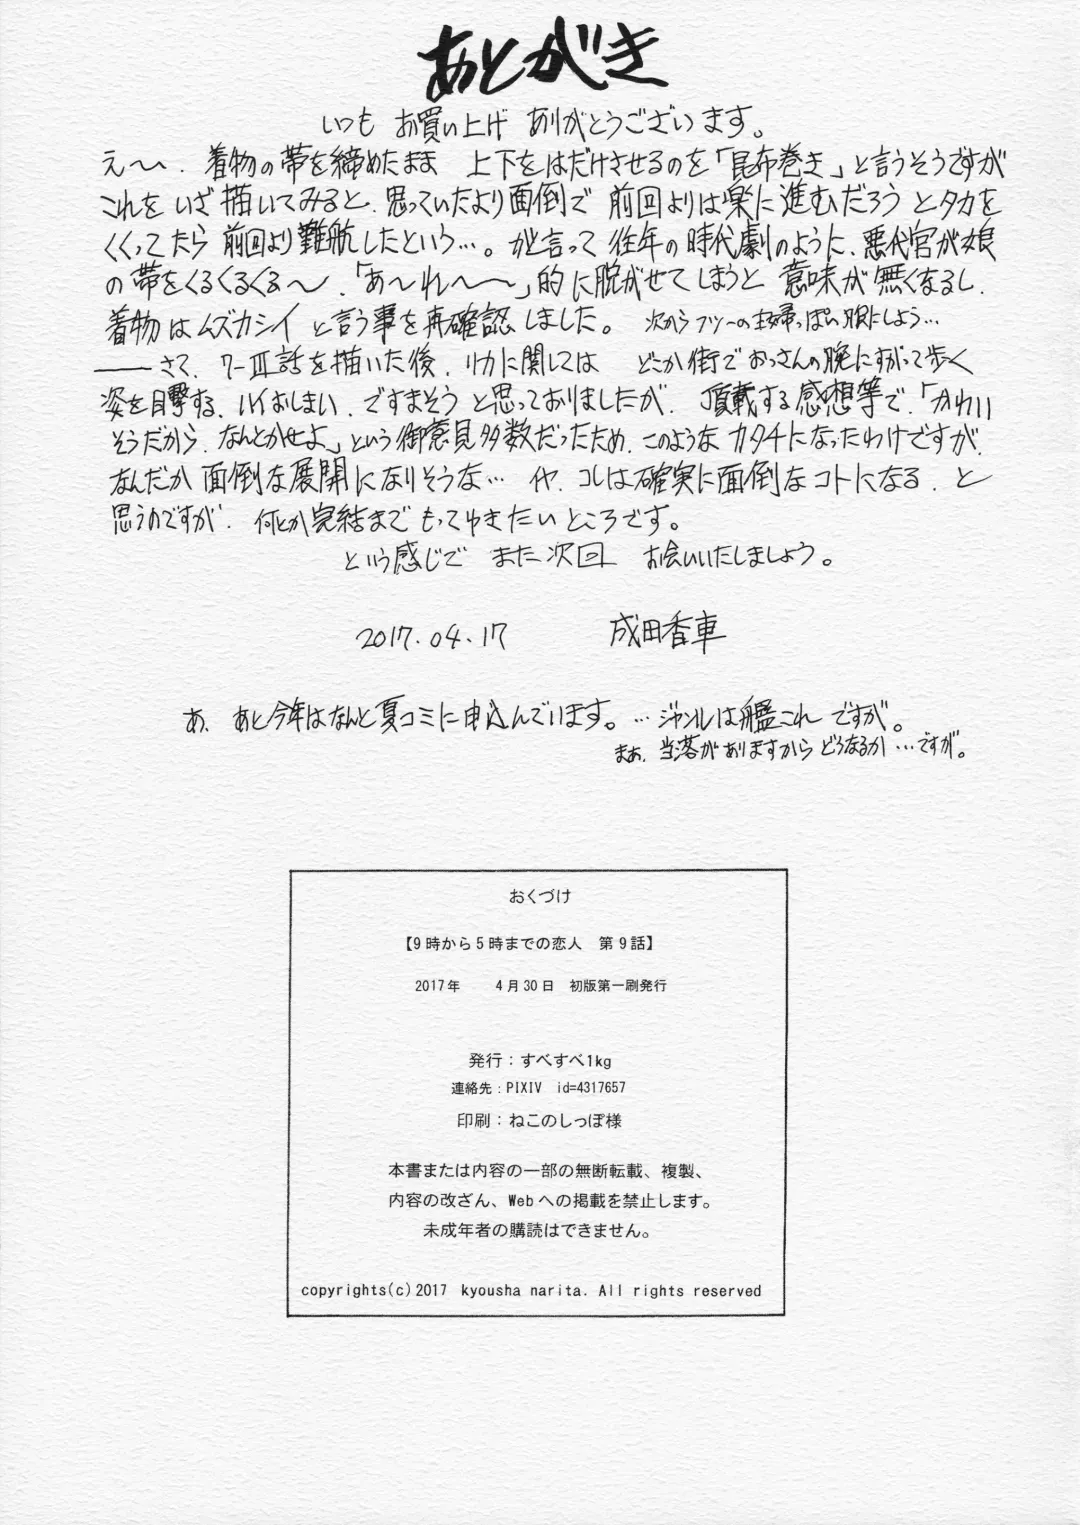 あとがき
いつも お買い上げ ありがとうございます。
え〜、着物の帯を締めたまま 上下をはだけさせるのを「昆布巻き」と言うそうですが
これを いざ 描いてみると、思っていたより面倒で 前回よりは楽に進むだろう とタカを
くくってたら 前回より難航したという…。が言って 往年の時代劇のように、悪代官が娘
の帯をくるくるくる〜、「あ〜れ〜〜」的に脱がせてしまうと 意味が無くなるし、
着物はムズカシイ と言う事を再確認しました。 次からフツーの主婦っぽい服にしよう…
――さて、7-III話を描いた後、リカに関しては どこか街でおっさんの腕にすがって歩く
姿を目撃する、ハイおしまい、ですまそう と思っておりましたが、頂戴する感想等で、「かわい
そうだから、なんとかせよ」という御意見多数だったため、このような カタチになったわけですが、
なんだか 面倒な展開になりそうな… イヤ、コレは確実に面倒なコトになる、と
思うのですが、何とか完結まで もってゆきたい ところです。
という感じで また次回 お会いいたしましょう。
2017.04.17 成田香車
あ、あと今年はなんと夏コミに申込んでいます。…ジャンルは艦これ ですが。
まぁ、当落がありますから どうなるか…ですが。
おくづけ
【9時から5時までの恋人 第9話】
2017年 4月30日 初版第一刷発行
発行：すべすべ1kg
連絡先：PIXIV id=4317657
印刷：ねこのしっぽ様
本書または内容の一部の無断転載、複製、
内容の改ざん、Webへの掲載を禁止します。
未成年者の購読はできません。
copyrights(c)2017 kyousha narita. All rights reserved